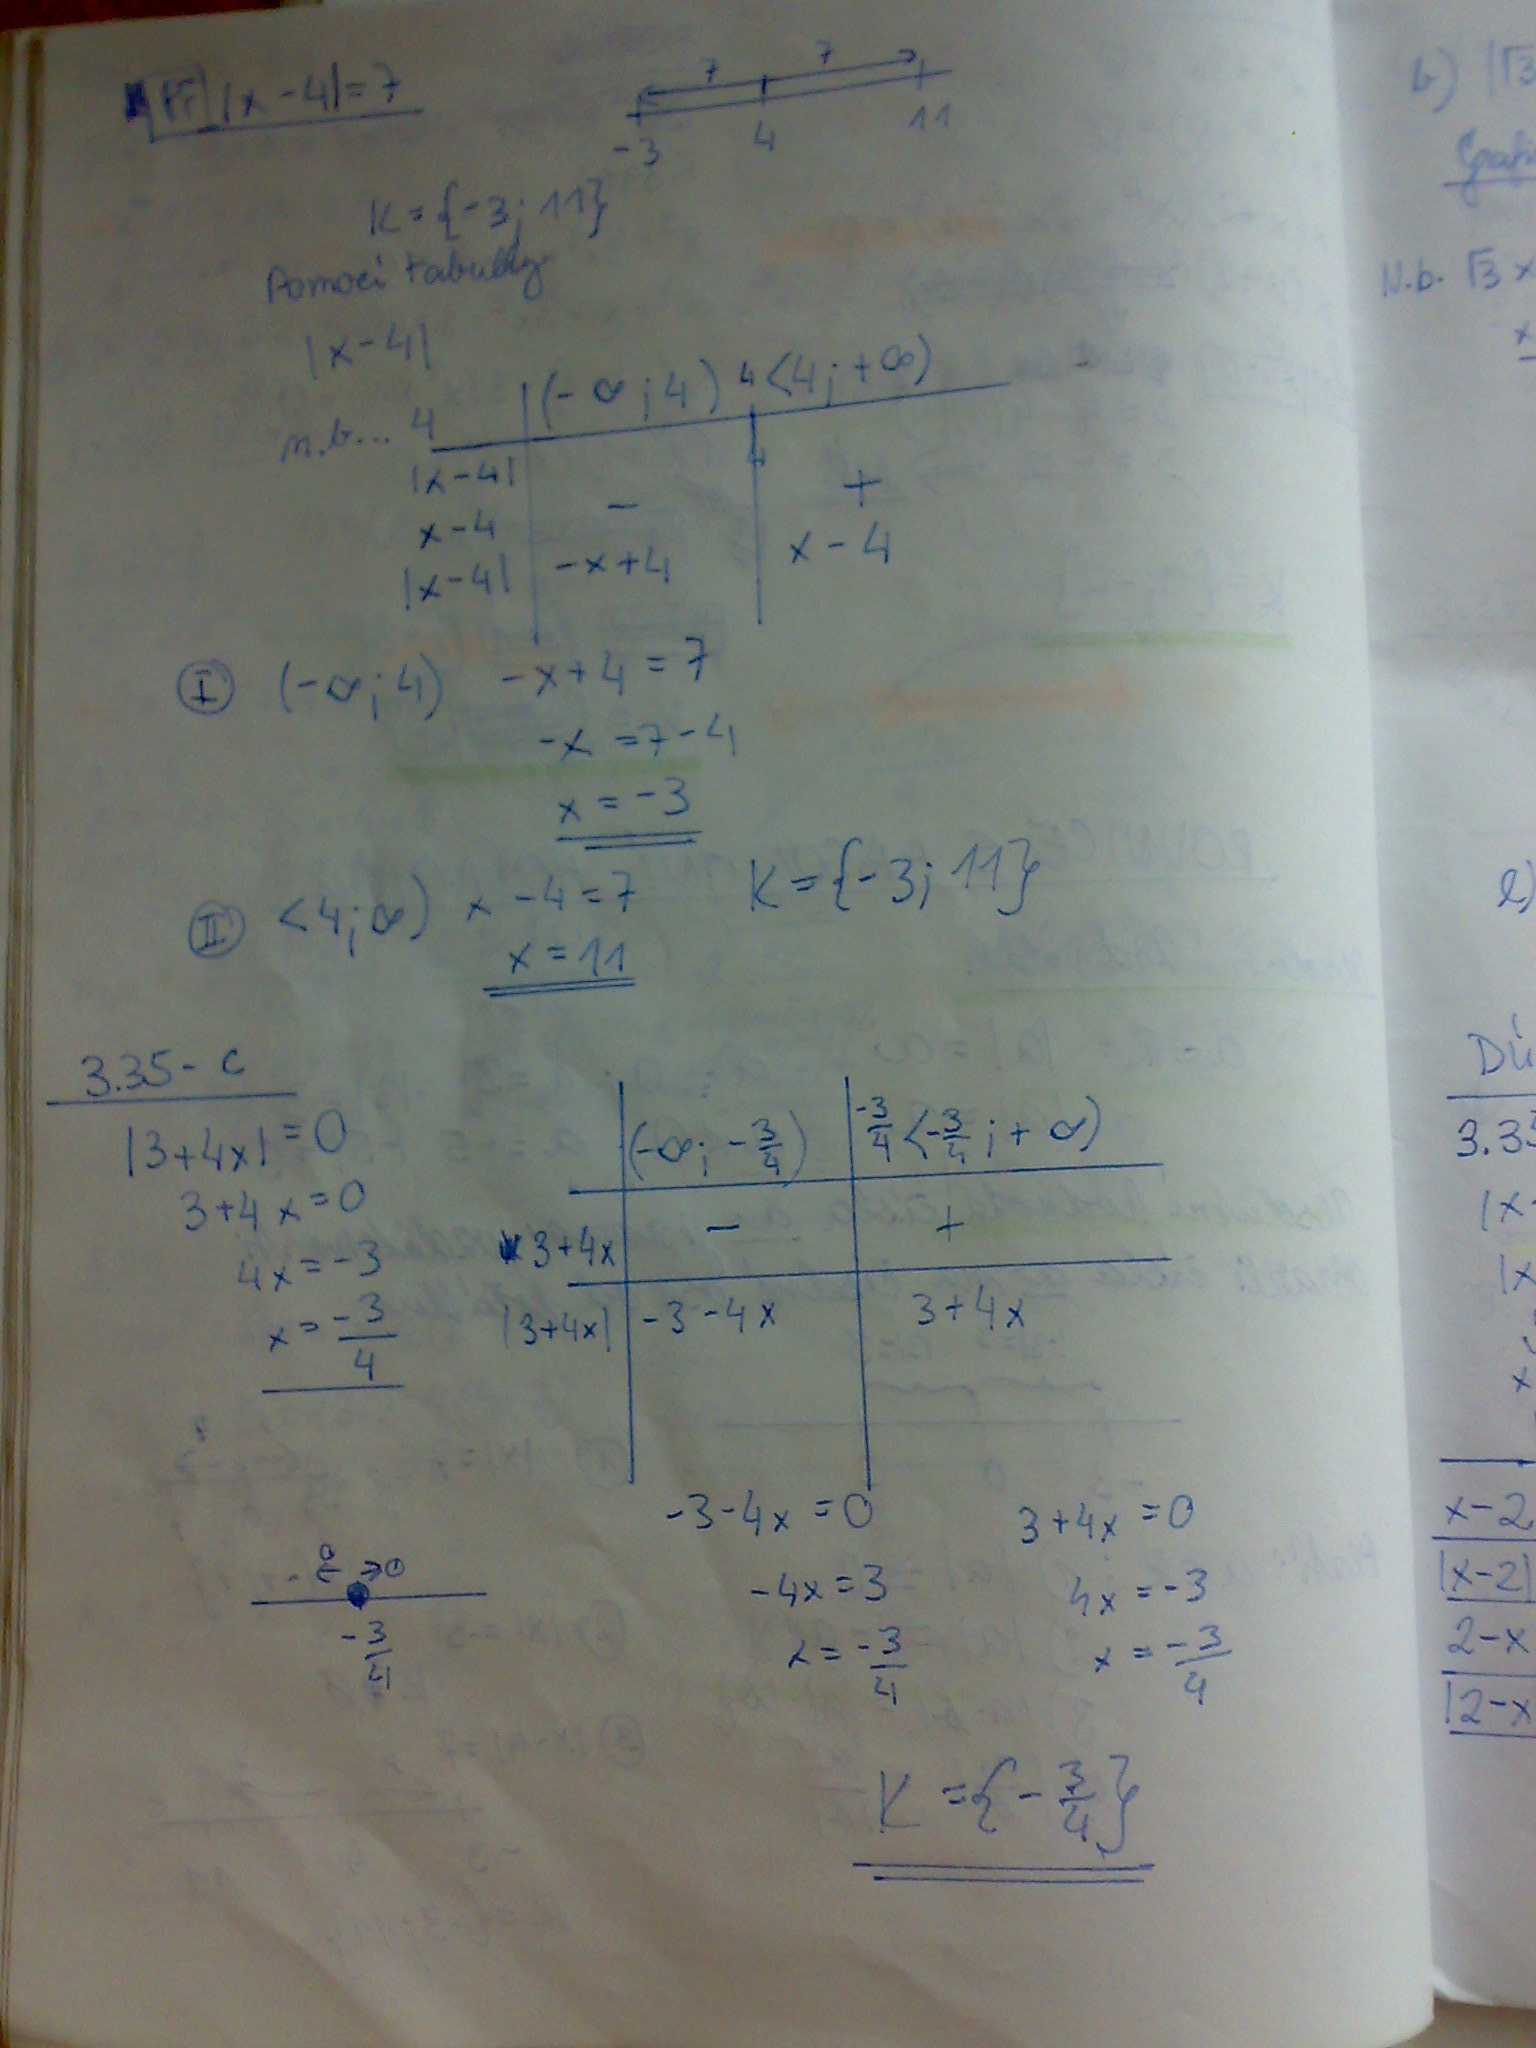 Př |x-4|=7
7 7
-3 4 11
K={-3; 11}
Pomocí tabulky
|x-4|
n.b... 4
(-∞; 4) 4 <4; +∞)
|x-4| 4
x-4 - +
|x-4| -x+4 x-4
I (-∞; 4) -x+4=7
-x=7-4
x=-3
II <4; ∞) x-4=7
x=11
K={-3; 11}
3.35-c
|3+4x|=0
3+4x=0
4x=-3
x=-3/4
(-∞; -3/4) -3/4 <-3/4; +∞)
3+4x - +
|3+4x| -3-4x 3+4x
0 → 0
-3/4
-3-4x=0
-4x=3
x=-3/4
3+4x=0
4x=-3
x=-3/4
K={-3/4}
b) |√3
N.b. √3 x
x
Dú
3.35
|x-
|x
x
x-2
|x-2|
2-x
|2-x